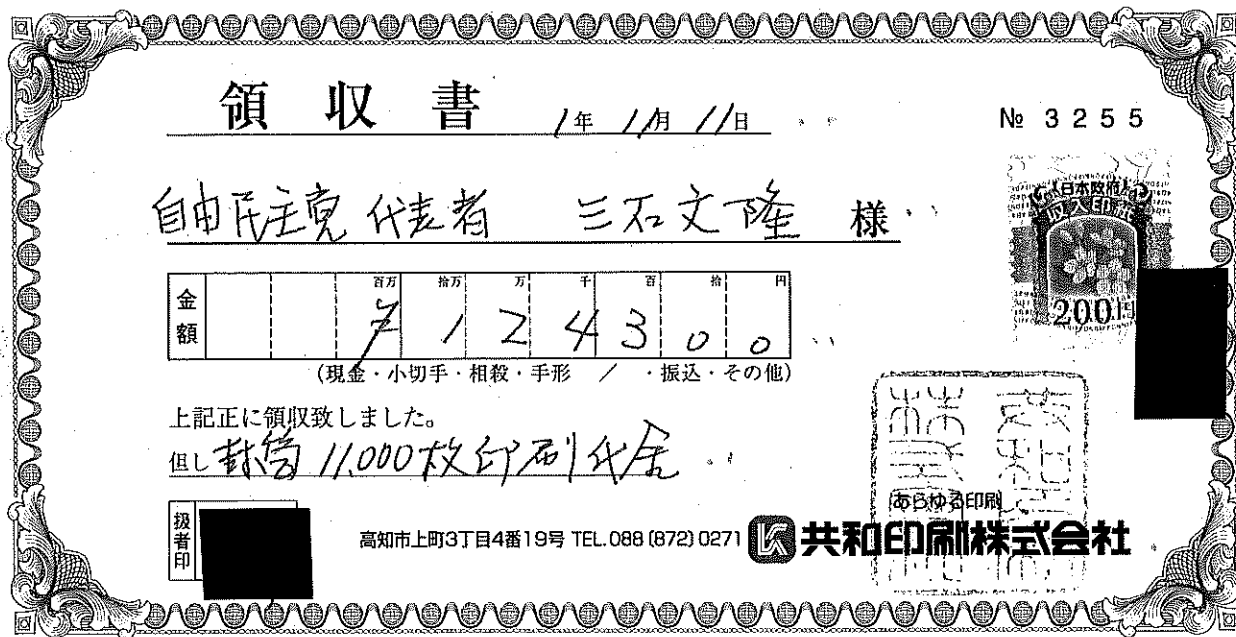 領収書 1年 11月 11日
№ 3255
自由民主党 代表者 三石文隆 様
日本政府
収入印紙
200円
金額
百万 拾万 万 千 百 拾 円
¥ 1 2 4 3 0 0
(現金・小切手・相殺・手形 / ・振込・その他)
上記正に領収致しました。
但し 封筒 11,000枚印刷代金
扱者印
あらゆる印刷
高知市上町3丁目4番19号 TEL.088(872)0271 共和印刷株式会社